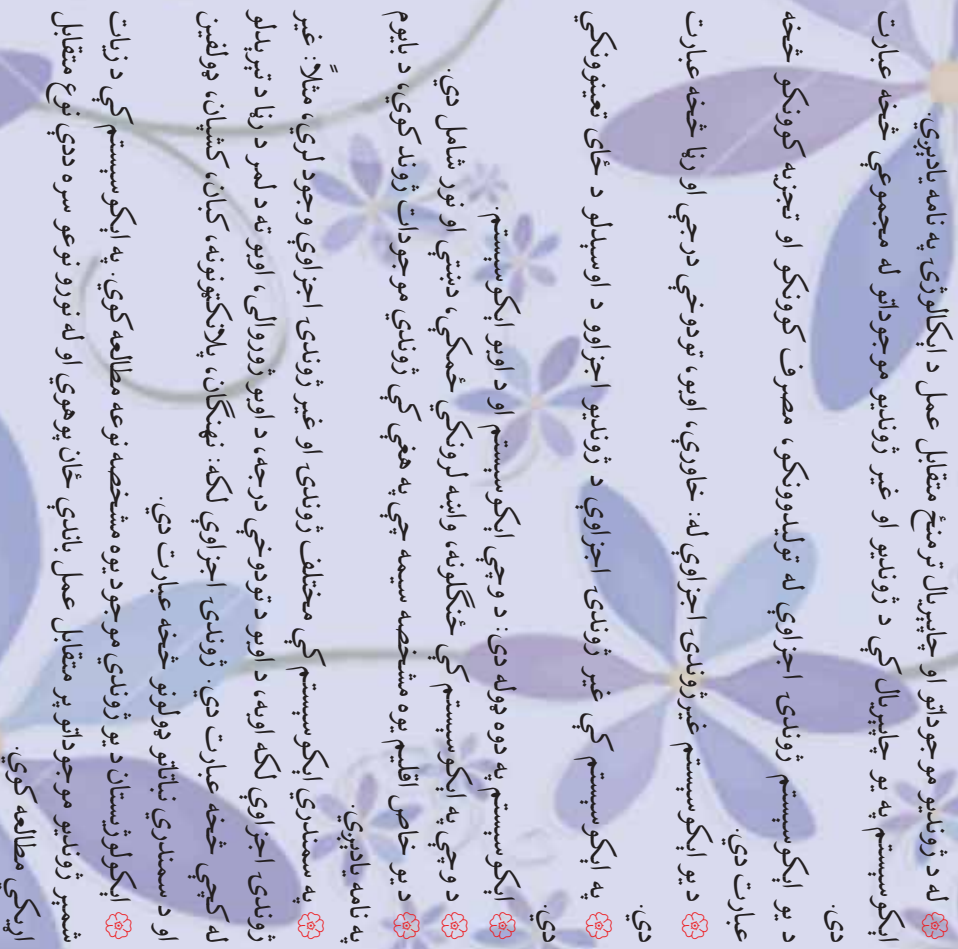 له د ژونديو موجوداتو او چاپيريال ترمنځ متقابل عمل د ايکالوژۍ په نامه ياديږي.
ايکوسيستم په يو چاپيريال کې د ژونديو او غير ژونديو موجوداتو له مجموعې څخه عبارت
دي.
د يو ايکوسيستم ژوندۍ اجزاوې له توليدوونکو، مصرف کوونکو او تجزيه کوونکو څخه
عبارت دي.
د يو ايکوسيستم غيرژوندۍ اجزاوې له: خاورې، اوبو، تودوخې درجې او رڼا څخه عبارت
دي.
په ايکوسيستم کې غير ژوندۍ اجزاوې د ژونديو اجزاوو د اوسيدلو د ځای تعينوونکې
دي.
ايکوسيستم په دوه ډوله دي: د وچې ايکوسيستم او د اوبو ايکوسيستم.
د وچې په ايکوسيستم کې ځنګلونه، واښه لرونکې ځمکې، دښتې او نور شامل دي.
د يو خاص اقليم يوه مشخصه سيمه چې په هغې کې ژوندي موجودات ژوند کوي، د بايوم
په نامه ياديږي.
په سمندري ايکوسيستم کې مختلف ژوندۍ او غير ژوندۍ اجزاوې وجود لري، مثلاً: غير
ژوندۍ اجزاوې لکه اوبه، د اوبو د تودوخې درجه، د اوبو ژوروالی، اوبو ته د لمر د رڼا د تيريدلو
له کچې څخه عبارت دي. ژوندۍ اجزاوې لکه: نهنګان، پلانکټونونه، کبان، کشپان، ډولفين
او د سمندري نباتاتو ډولونو څخه عبارت دي.
ايکولوژستان د يو ژوندي موجود يوه مشخصه نوعه مطالعه کوي. په ايکوسيستم کې د زيات
شمير ژونديو موجوداتو پر متقابل عمل باندې ځان پوهوي او له نورو نوعو سره ددې نوع متقابل
اړيکې مطالعه کوي.